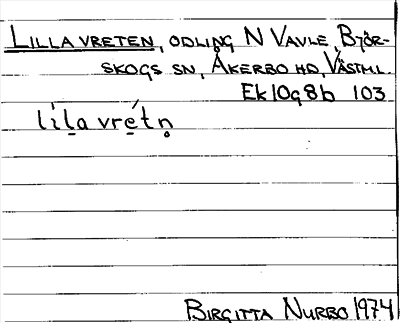 LILLA VRETEN, ODLING N VAVLE, BJÖR-
SKOGS SN, ÅKERBO HD, VÄSTML.
Ek 10g8b 103
lil̲a vré̲tn̥
BIRGITTA NURBO 1974